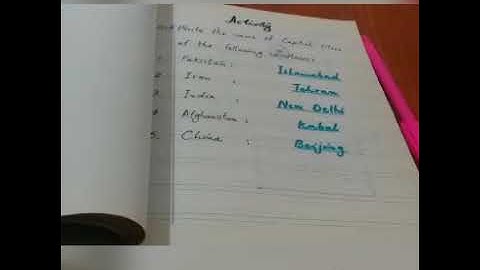 Activity
Write the name of Capital cities
of the following countries:
Pakistan : Islamabad
Iran : Tehran
India : New Delhi
Afghanistan : Kabal
5. China : Beijing